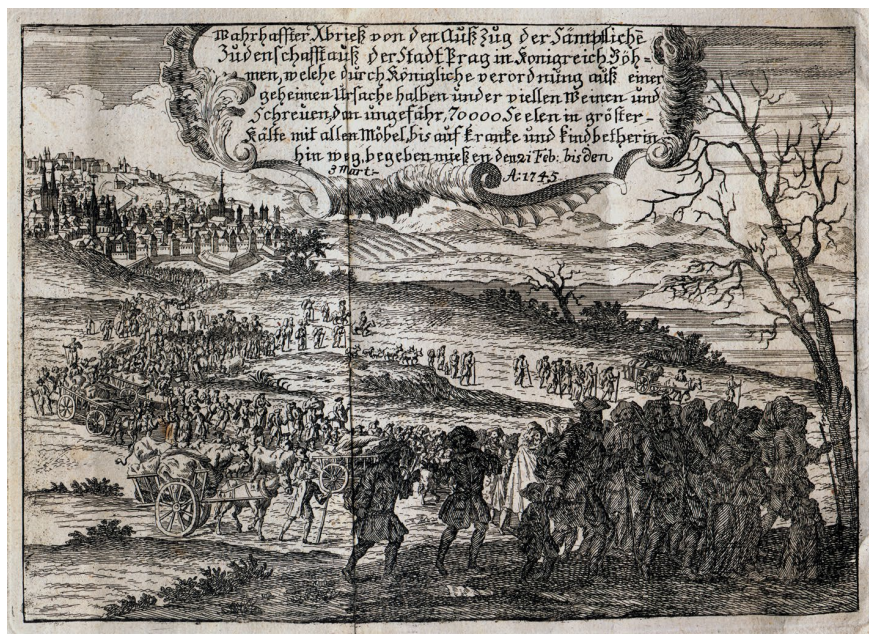 Wahrhaffter Abrieß von den Außzug der Sämptliche
Judenschafft auß der Stadt Prag in Konigreich Böh=
men, welche durch Königliche verordnung auß einer
geheimen Ursache halben under viellen Weinen und
Schreuen, den ungefähr, 70000 Seelen in gröster-
Kälte mit allen Möbel, bis auf kranke und kindbetherin
hin weg, begeben mießen den 21 Feb: bis den
3 Mart:- A: 1745